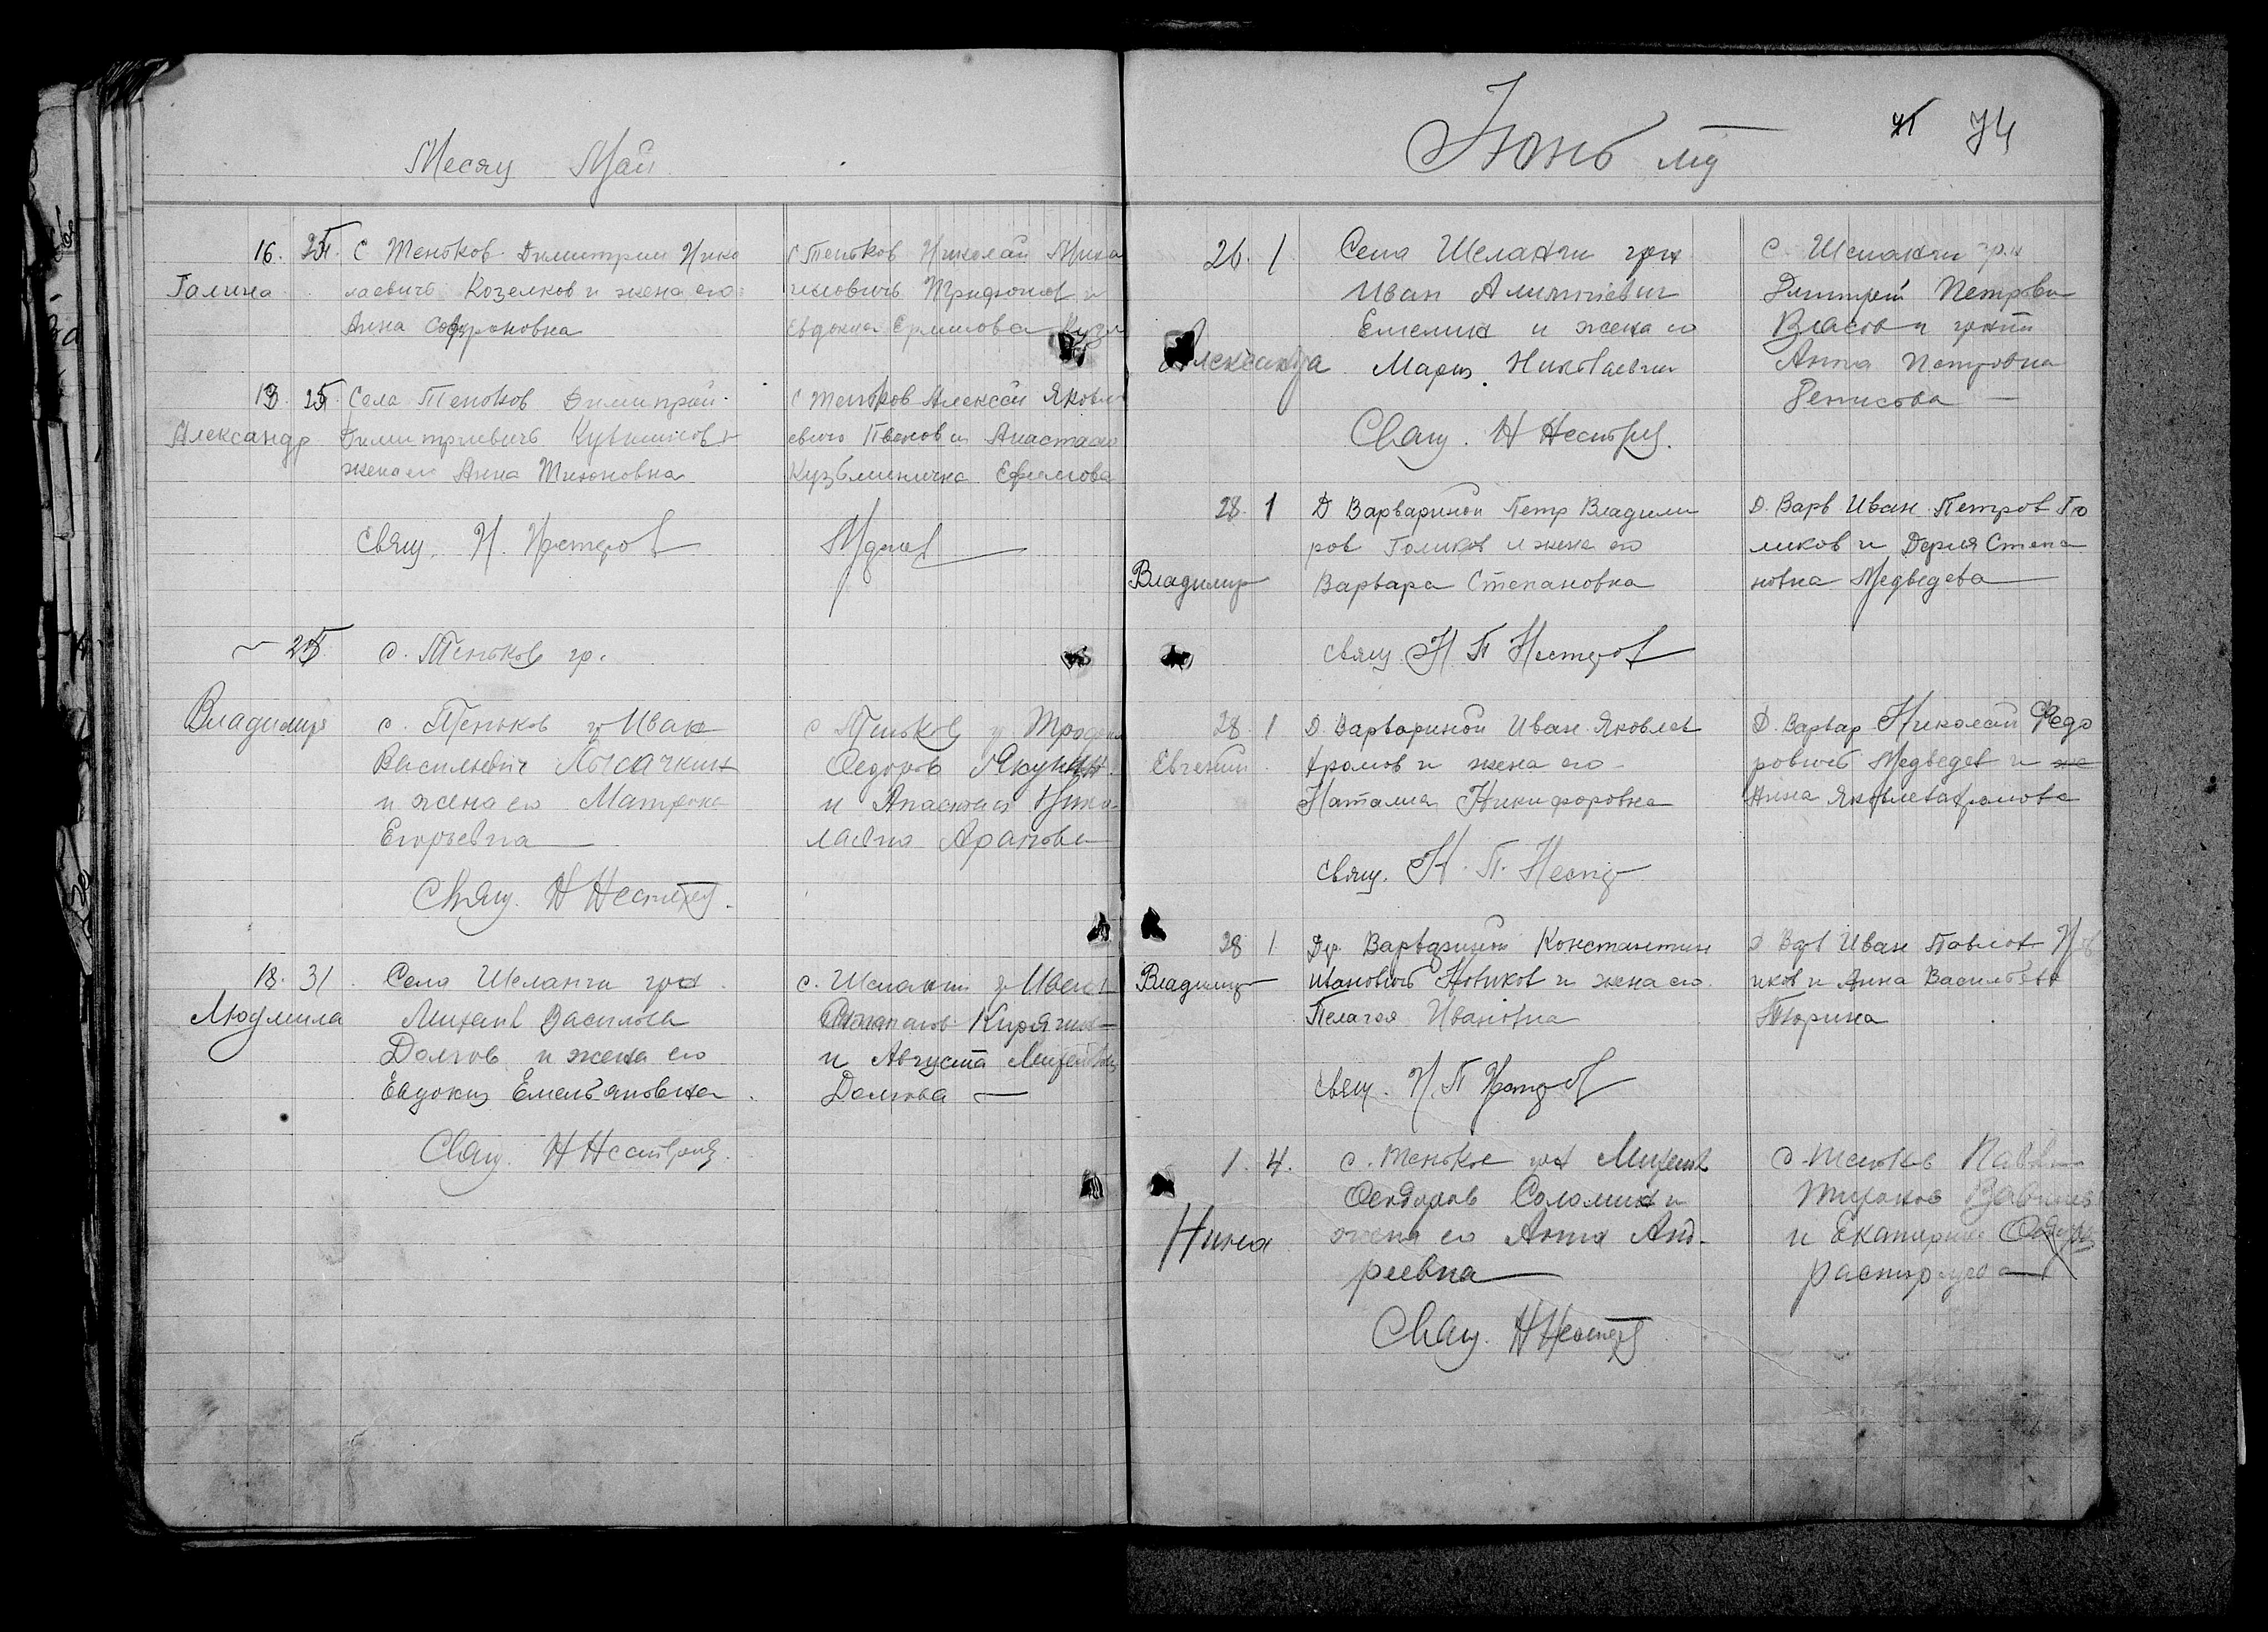 Месяц Май
16. 25. С Теньков Димитрий Нико
Галина лаевичъ Козелков и жена его
Анна Софроновна
С Теньков Николай Миха
иловичъ Трифонов и
Евдокия Ермилова
13. 25. Села Теньков Димитрий
Александр Димитриевичъ Кувшинов и
жена его Анна Тихоновна
С Теньков Алексей Яковл
евичъ и Анастасия
Кузьминична Ефремова
Свящ. Н. Нестеров
25 с. Теньков гр.
Владимир с. Теньков гр Иван
Васильевич Лысачкин
и жена его Матрона
Егорьевна
с Теньков гр
Федоров Якунин
и Анастасия Нико
лаевна Арапова
Свящ. Н Нестеров.
18. 31. Села Шеланги гр
Людмила Михаил Васильев
Долгов и жена его
Евдокия Емельяновна
с. Шеланги гр Иван
Кирягин
и Августа Михайлов
Долгова
Свящ. Н Нестеров.
Июнь м
74
26. 1 Села Шеланги гр
Иван
Емелин и жена его
Александра Мария Николаевна
с. Шеланги гр
Дмитрий Петрович
Власов и
Анна Петровна
Денисова
Свящ. Н Нестеров.
28. 1 Д Варвариной Петр Владими
ров Голиков и жена его
Владимир Варвара Степановна
Д. Варв Иван Петров Го
ликов и Дарья Степа
новна Медведева
свящ Н П Нестеров
28. 1 Д Варвариной Иван Яковлев
Евгений Храмов и жена его
Наталия Никифоровна
Д. Варвар Николай Федо
ровичъ Медведев и же
Анна Яковлева Храмова
свящ. Н. П. Нестер
28 1 Др. Вариной Константин
Владимир Ивановичъ Новиков и жена его
Пелагея Ивановна
Д Вар Иван Павлов Нов
иков и Анна Васильева
Тюрина
свящ. Н. П Нестеров
1. 4. с. Теньков гр Михаил
Федоров Соломин и
Нина жена его Анна Анд-
реевна
с. Теньков Павел
Тихонов Вавилов
и Екатерина
Расторгуева
Свящ. Н Нестеров